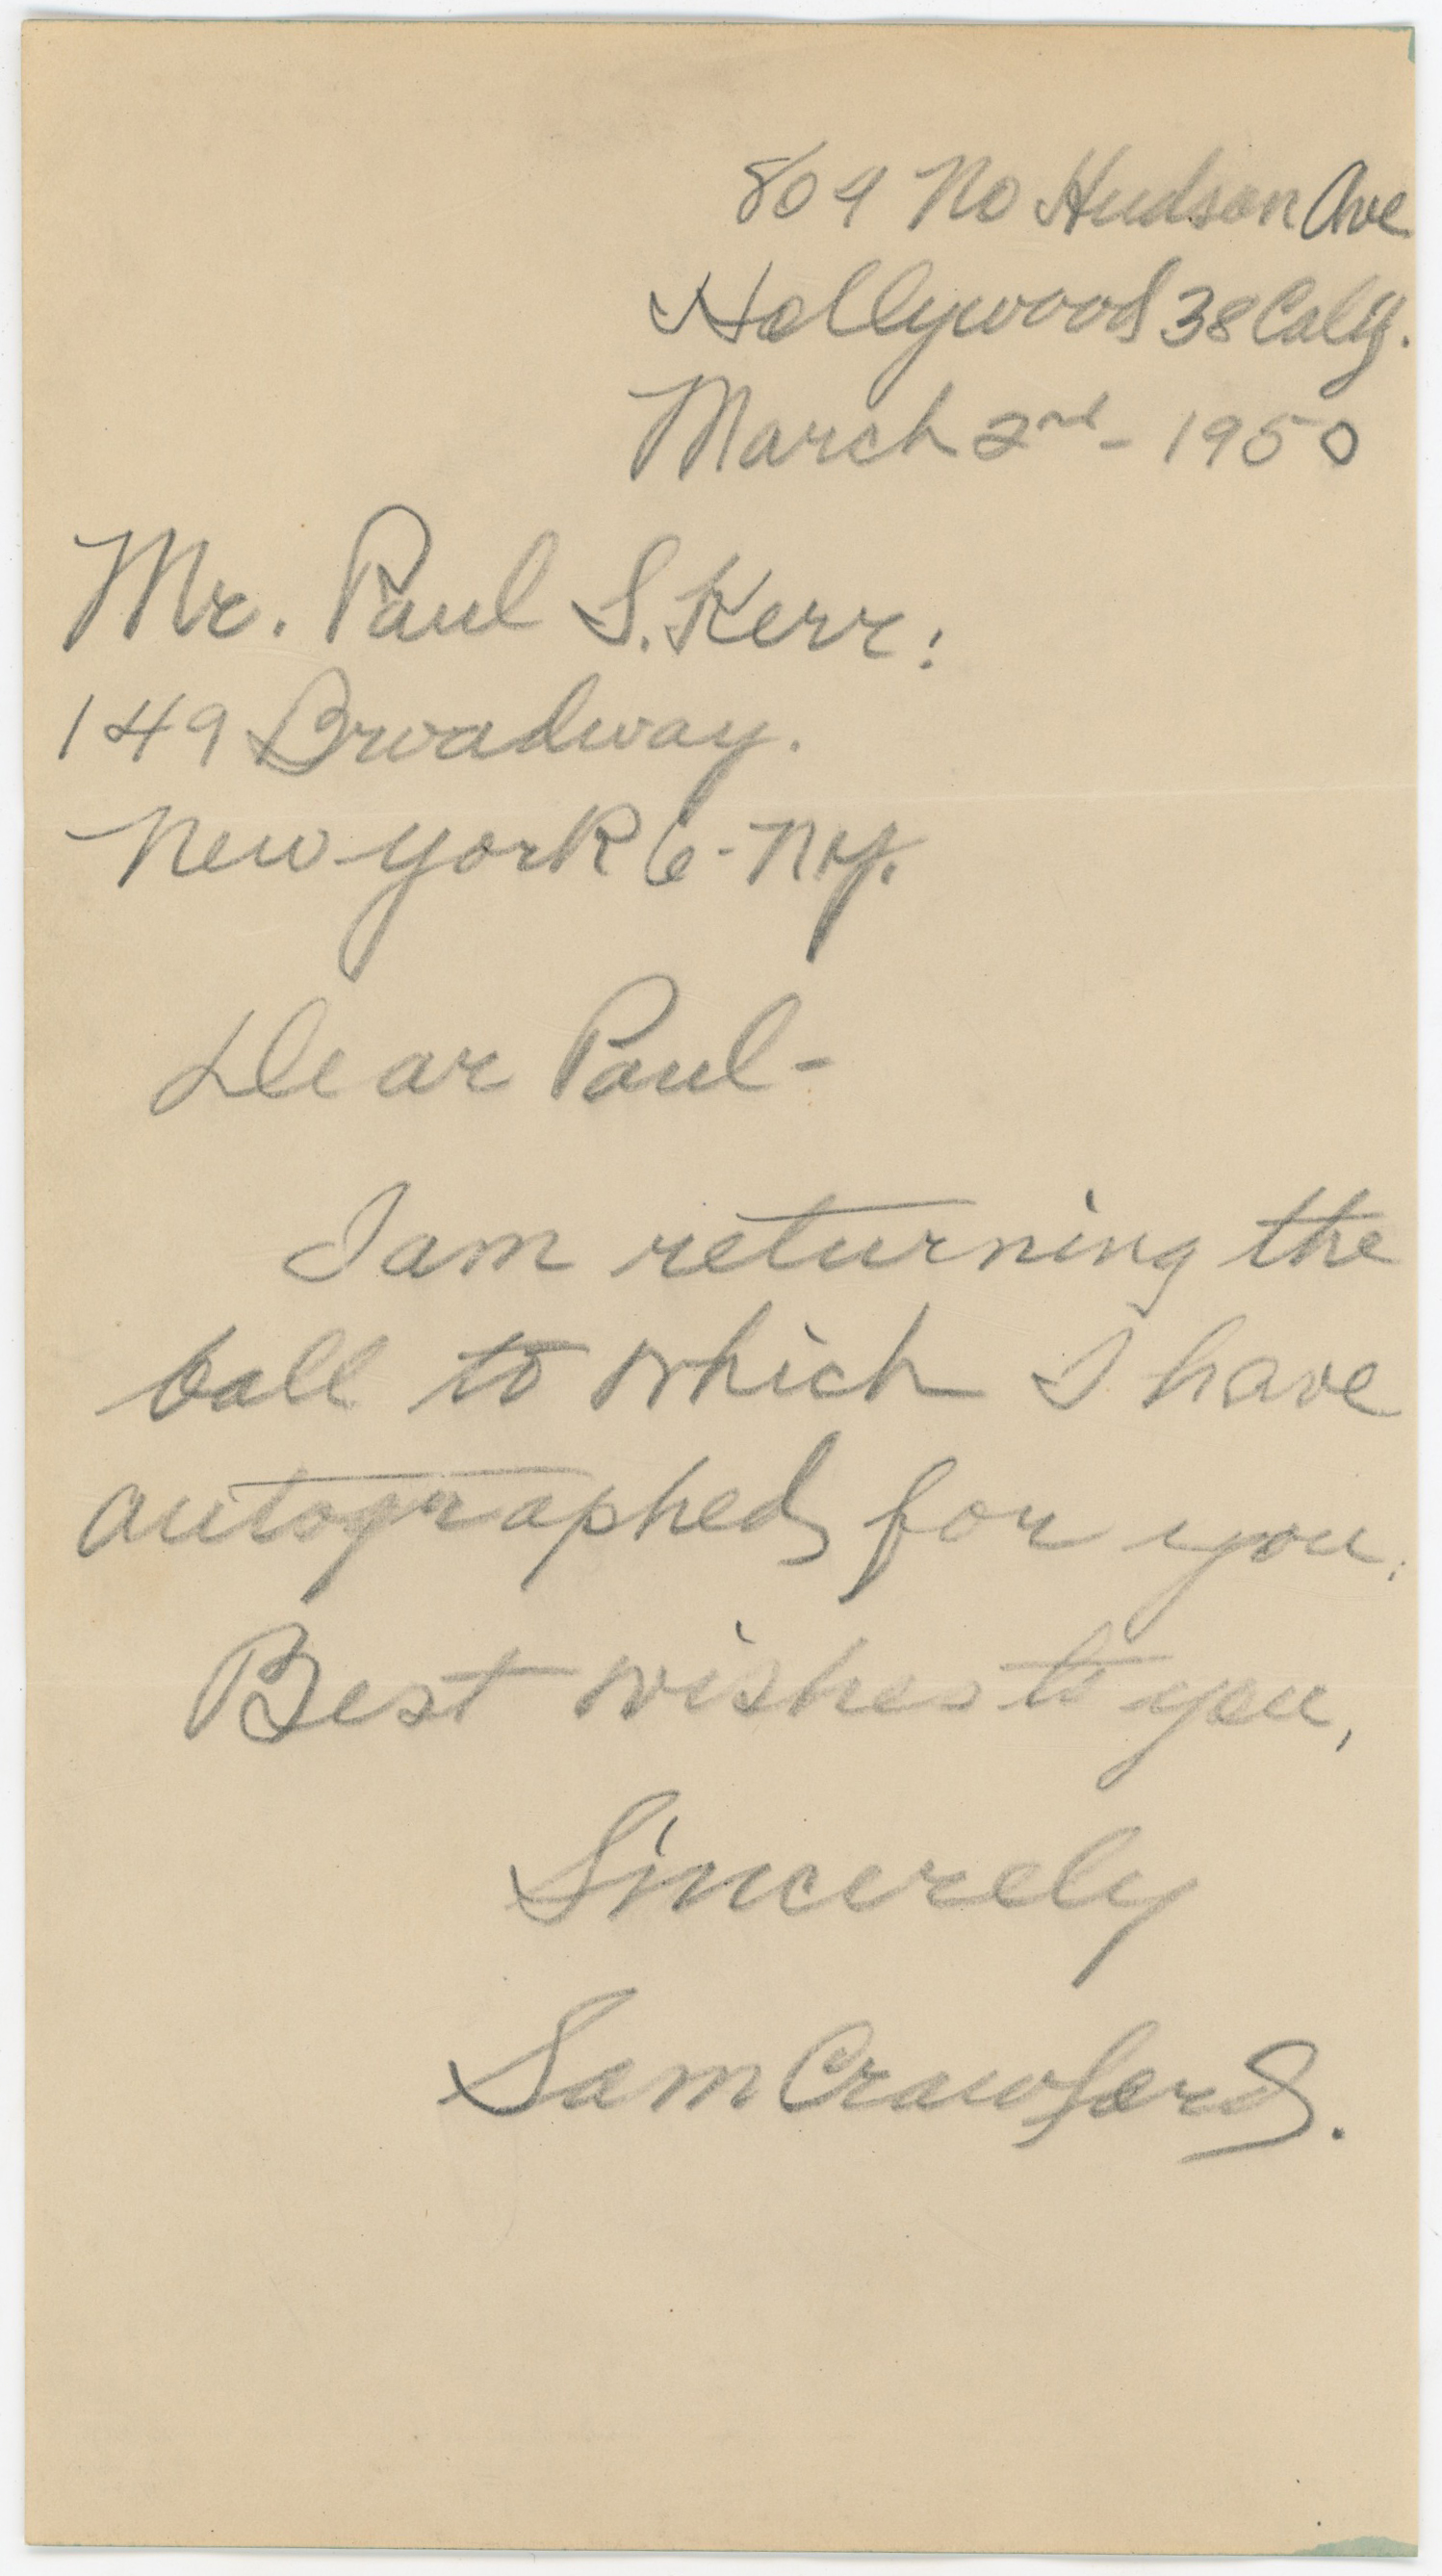 809 No Hudson Ave
Hollywood 38 Calif.
March 2nd - 1950
Mr. Paul S. Kerr:
149 Broadway.
New York 6 - N.Y.
Dear Paul -
I am returning the
ball to which I have
autographed for you.
Best wishes to you,
Sincerely
Sam Crawford.